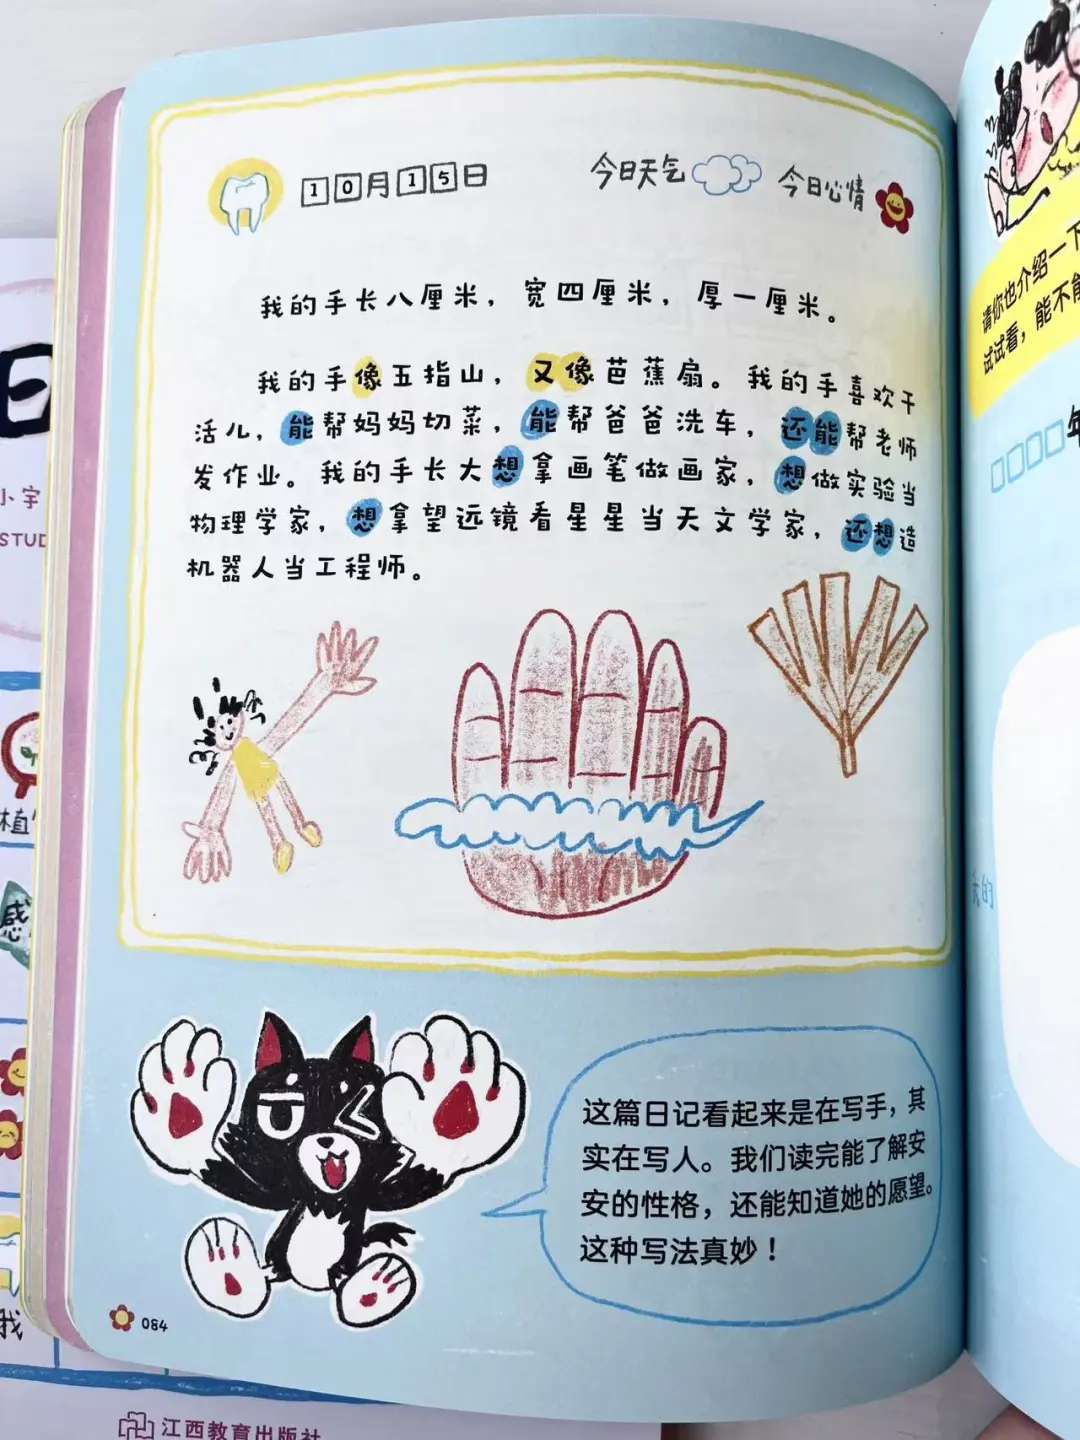 10月15日 今日天气 今日心情
我的手长八厘米，宽四厘米，厚一厘米。
我的手像五指山，又像芭蕉扇。我的手喜欢干
活儿，能帮妈妈切菜，能帮爸爸洗车，还能帮老师
发作业。我的手长大想拿画笔做画家，想做实验当
物理学家，想拿望远镜看星星当天文学家，还想造
机器人当工程师。
这篇日记看起来是在写手，其
实在写人。我们读完能了解安
安的性格，还能知道她的愿望。
这种写法真妙！
084
请你也介绍一下
试试看，能不能
年
我的
日
小宇
STUD
植
感
我
江西教育出版社